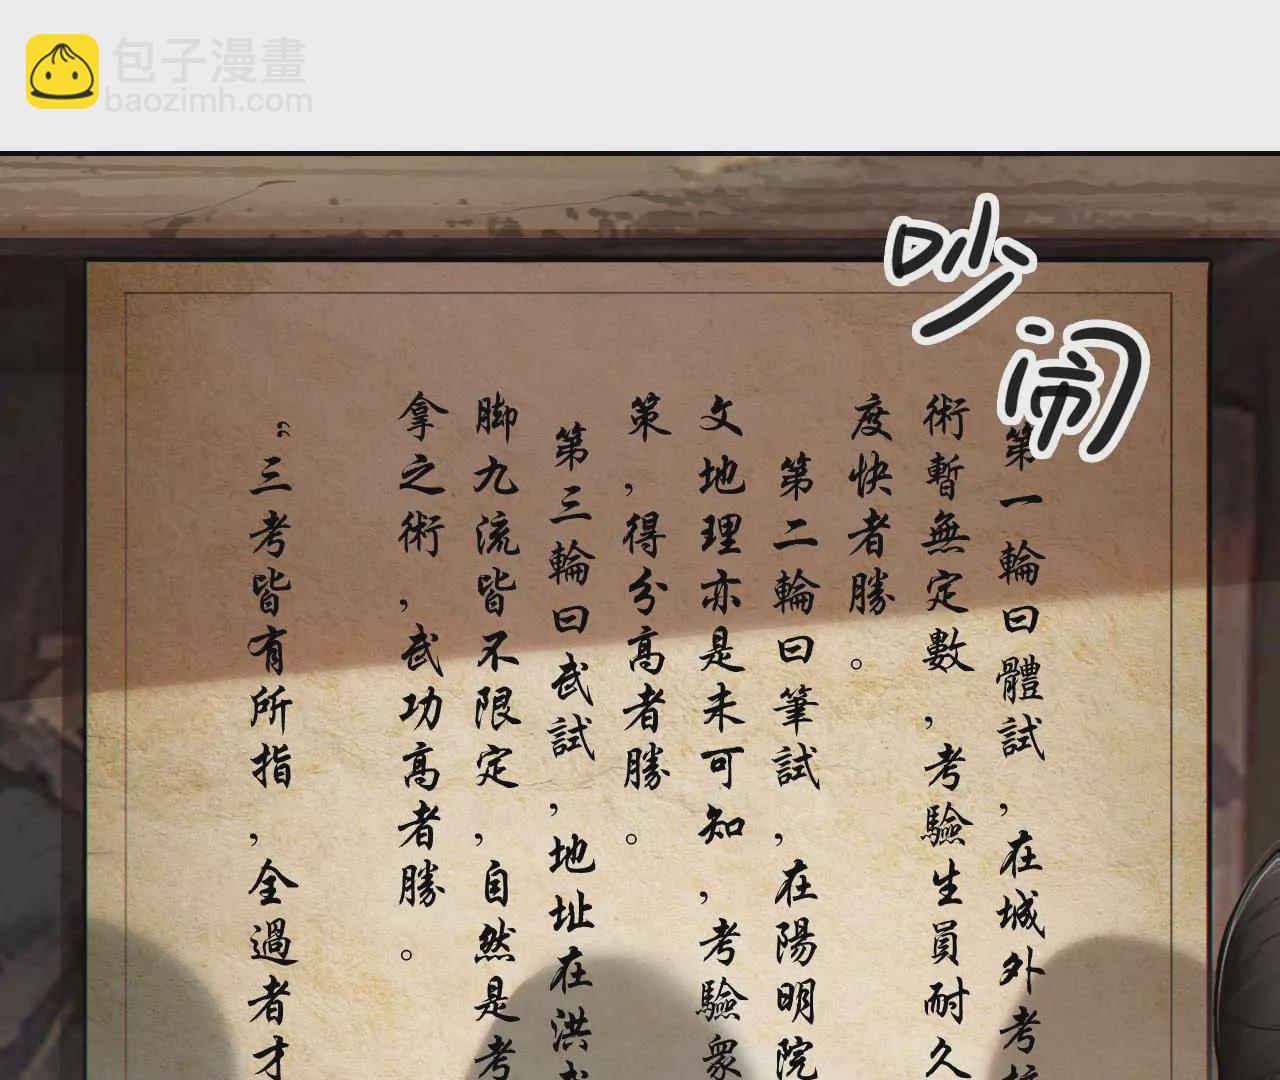 包子漫畫
baozimh.com
吵闹
第一輪曰體試，在城外考
術暫無定數，考驗生員耐久
度快者勝。
第二輪曰筆試，在陽明院
文地理亦是未可知，考驗衆
策，得分高者勝。
第三輪曰武試，地址在洪
脚九流皆不限定，自然是考
拿之術，武功高者勝。
三考皆有所指，全過者才